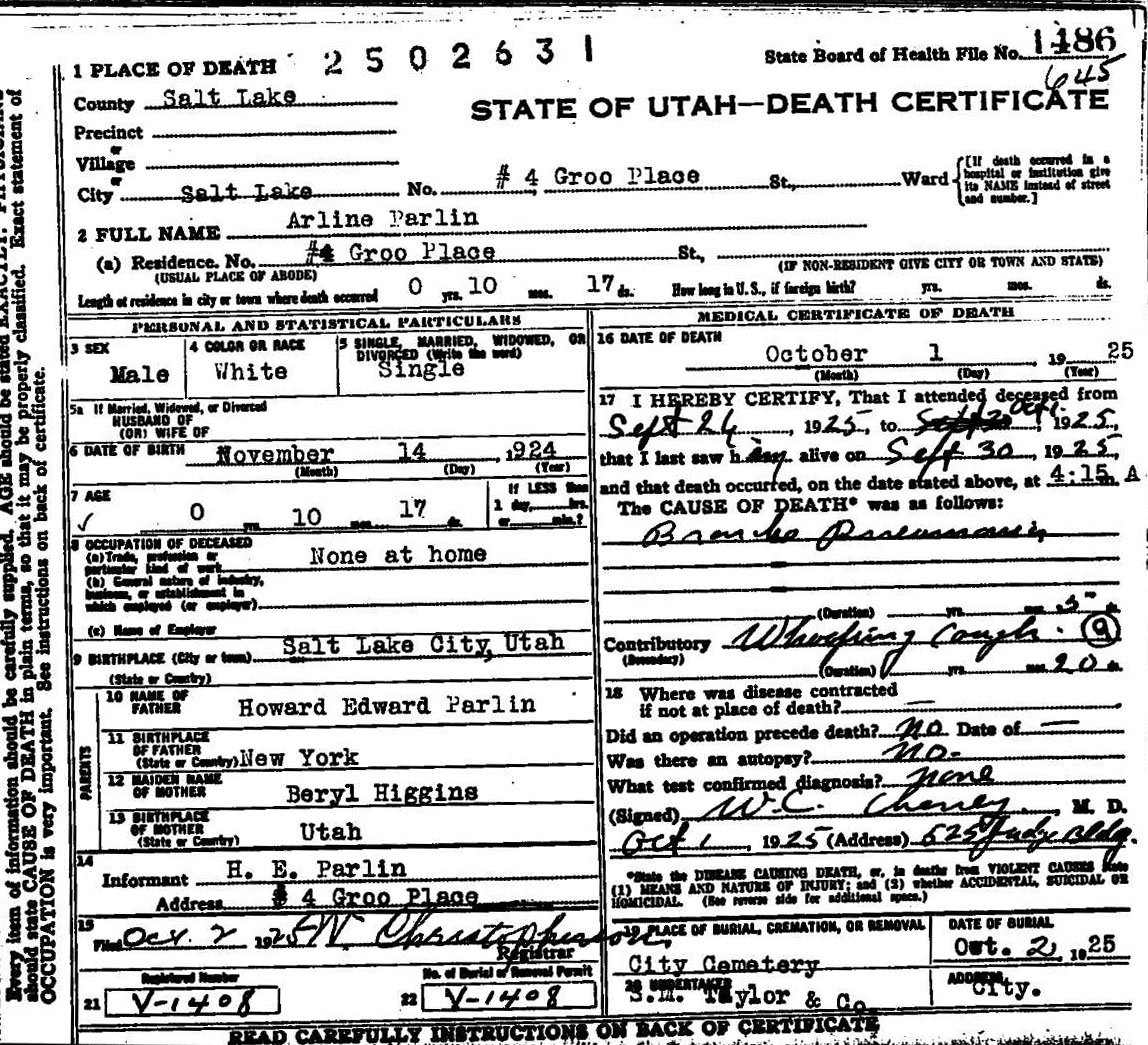 1 PLACE OF DEATH 2502631 State Board of Health File No. 1486
645
County Salt Lake STATE OF UTAH—DEATH CERTIFICATE
Precinct
or
Village
or
City Salt Lake No. # 4 Groo Place St., Ward [If death occurred in a hospital or institution give its NAME instead of street and number.]
2 FULL NAME Arline Parlin
(a) Residence. No. #4 Groo Place St.,
(USUAL PLACE OF ABODE) (IF NON-RESIDENT GIVE CITY OR TOWN AND STATE)
Length of residence in city or town where death occurred 0 yrs. 10 mos. 17 ds. How long in U. S., if foreign birth? yrs. mos. ds.
PERSONAL AND STATISTICAL PARTICULARS
3 SEX Male
4 COLOR OR RACE White
5 SINGLE, MARRIED, WIDOWED, OR DIVORCED (Write the word) Single
5a If Married, Widowed, or Divorced
HUSBAND OF
(OR) WIFE OF
6 DATE OF BIRTH November 14 1924
(Month) (Day) (Year)
7 AGE 0 yrs. 10 mos. 17 ds. If LESS than 1 day, hrs. or min.?
8 OCCUPATION OF DECEASED
(a) Trade, profession or particular kind of work None at home
(b) General nature of industry, business, or establishment in which employed (or employer)
(c) Name of Employer
9 BIRTHPLACE (City or town) Salt Lake City, Utah
(State or Country)
PARENTS
10 NAME OF FATHER Howard Edward Parlin
11 BIRTHPLACE OF FATHER (State or Country) New York
12 MAIDEN NAME OF MOTHER Beryl Higgins
13 BIRTHPLACE OF MOTHER (State or Country) Utah
14 Informant H. E. Parlin
Address # 4 Groo Place
15 Filed Oct. 2 1925 W. Christopherson,
Registrar
Registered Number No. of Burial or Removal Permit
21 V-1408 22 V-1408
MEDICAL CERTIFICATE OF DEATH
16 DATE OF DEATH October 1 19 25
(Month) (Day) (Year)
17 I HEREBY CERTIFY, That I attended deceased from
Sept 24, 1925, to Oct 1, 1925,
that I last saw him alive on Sept 30, 1925,
and that death occurred, on the date stated above, at 4:15 m. A
The CAUSE OF DEATH* was as follows:
Broncho Pneumonia
(Duration) yrs. mos. 5 ds.
Contributory Whooping Cough. 9
(Secondary) (Duration) yrs. mos. 20 ds.
18 Where was disease contracted
if not at place of death? —
Did an operation precede death? No Date of —
Was there an autopsy? No-
What test confirmed diagnosis? none
(Signed) W.C. Cheney, M. D.
Oct 1, 1925 (Address) 625 Judge Bldg.
*State the DISEASE CAUSING DEATH, or, in deaths from VIOLENT CAUSES state
(1) MEANS AND NATURE OF INJURY; and (2) whether ACCIDENTAL, SUICIDAL OR
HOMICIDAL. (See reverse side for additional space.)
19 PLACE OF BURIAL, CREMATION, OR REMOVAL City Cemetery
DATE OF BURIAL Oct. 2, 1925
20 UNDERTAKER S.M. Taylor & Co.
ADDRESS City.
READ CAREFULLY INSTRUCTIONS ON BACK OF CERTIFICATE
Every item of information should be carefully supplied. AGE should be stated EXACTLY. PHYSICIANS
should state CAUSE OF DEATH in plain terms, so that it may be properly classified. Exact statement of
OCCUPATION is very important. See instructions on back of certificate.